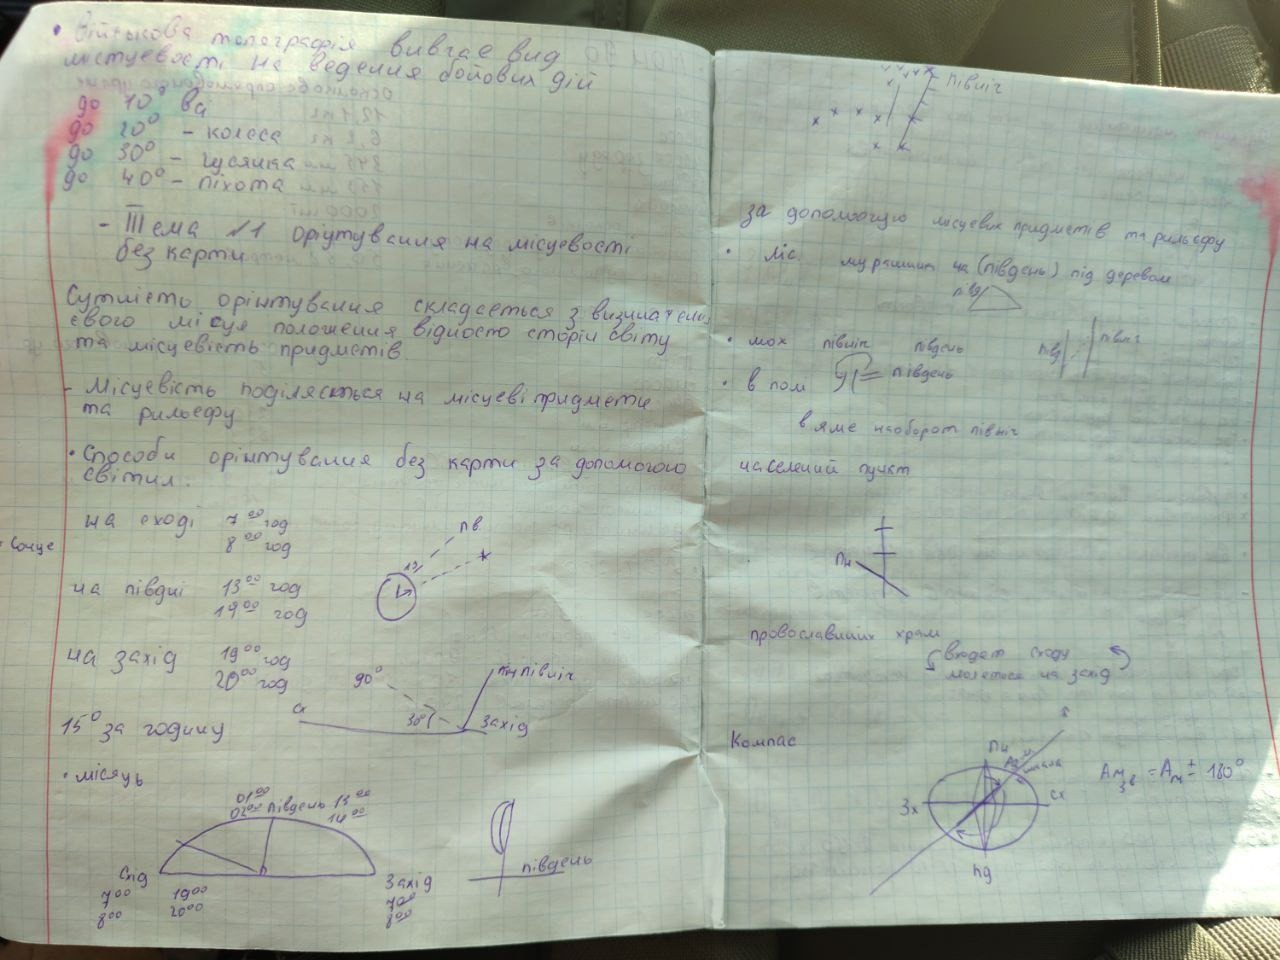 • Військова топографія вивчає вид
містцевості на ведення бойових дій
до 10° ва
до 20° - колеса
до 30° - гусянка
до 40° - піхота
- Тема №1 оріутування на місцевості
без карти
Сутність орінтування складається з визначення
свого місця положення відносто сторін світу
та місцевість придметів.
- Місцевість поділяється на місцеві придмети
та рильєфу
• Способи орінтування без карти за допомогою
світил.
• Сонце
на сході 7⁰⁰ год
8⁰⁰ год
пв
13
на півдні 13⁰⁰ год
19⁰⁰ год
на захід 19⁰⁰ год
20⁰⁰ год
90°
пн північ
сх
30°
захід
15° за годину
• місяць
01⁰⁰ південь 13⁰⁰
02⁰⁰ 14⁰⁰
південь
Схід
7⁰⁰ 19⁰⁰
8⁰⁰ 20⁰⁰
Захід
7⁰⁰
8⁰⁰
північ
за допомогую місцевих придметів та рильєфу
• ліс. мурашник на (південь) під деревом
пвд
• мох північ південь
півд північ
• в пом південь
в яме наоборот північ
населений пункт
пн
провославних храм
входят сходу
молеться на захід
Компас
Пн
шкала
Зх
сх
пд
Ам зв = Ам ± 180°